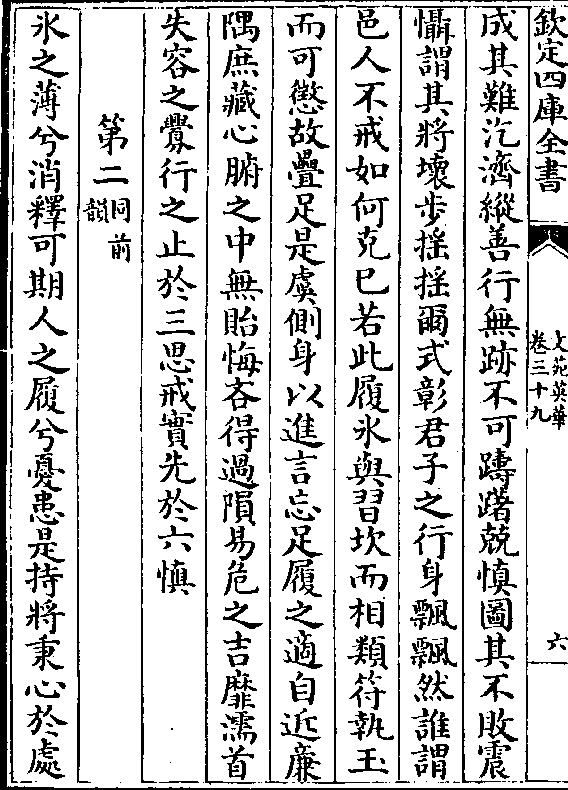 欽定四庫全書
文苑英華
卷三十九
六
成其難汔濟縱善行無跡不可躊躇兢慎圖其不敗震
懾謂其將壞步搖搖爾式彰君子之行身飄飄然誰謂
邑人不戒如何克已若此履氷與習坎而相類符執玉
而可懲故疊足是虞側身以進言忘足履之適自近廉
隅庶藏心腑之中無貽悔吝得過隕易危之吉靡濡首
失容之釁行之止於三思戒實先於六慎
第二同前韻
氷之薄兮消釋可期人之履兮憂患是持將秉心於處